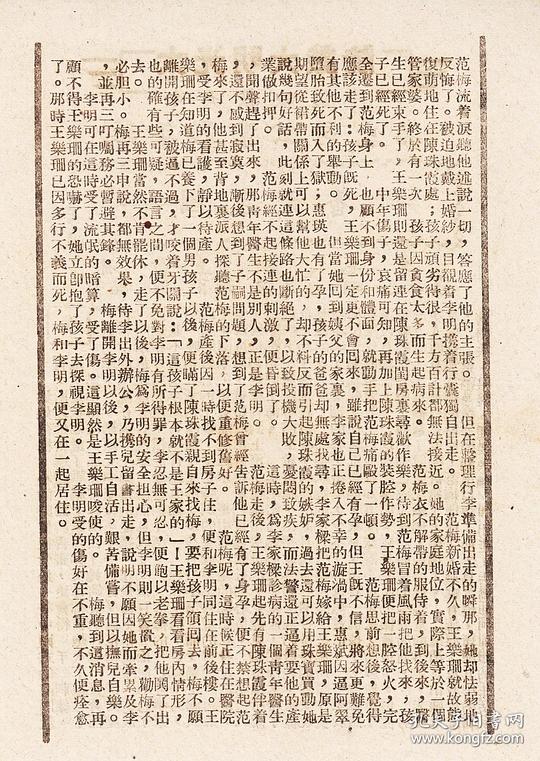 范梅流着淚聽他述說一切,答應了他的主張。　但在整理行李準備出走的瞬那,她却怯弱地
反悔了。被迫地戴上婚紗,目覩着李明携着行囊獨自出走。　范梅新婚不久,王樂珊就故態
復萌地住在陳珠霞處;孩子頑劣得很,千方百計都無法接近。她的家庭地位,實際上等於一個
管家婆。終於有一次,孩子因貪食太多而生起病來。　范梅衣不解帶的服侍着,到後來,醫
生已經束手了,王樂珊則還是留連在陳珠霞閨房裏尋歡作樂,待到范梅冒着風雨把他找來,孩
子已經死了。　中年傷子,哀痛可知,再加上陳珠霞的裝腔作勢,王樂珊便把一腔怒火,完
全遷到范梅身上,也顧不到身份和體面,就動手把范梅痛毆了一頓。　范梅思前想後,覺得
應該走了:孩子既死,王樂珊一定更不會回來,雖說自己已經有孕,但王既不信,將來更難免
有其他不利的舉動。　但當她回到姨父的家裏,李家也正捲入不幸的漩渦中,惠斌因逼阿翠
墮胎致死而入了獄;惠瑛也有了孕,孩子的爸爸却無處找尋,李家樑把范梅嫁給王樂珊,原是
期望從裙帶關係上可以幫他大忙的,却不料反而引起陳珠霞的嫉妒,過去還可以用珠寶買動她
說幾句好話,此刻就連這條路也斷絕了,以致投機大敗,憂悶致疾,而法警還正逼着要他的產
業做扣押。　范梅經不起接連的刺激,便昏倒了。　這時,爲李家樑診病的一個青年醫生
,聞聲趕了出來,那青年醫生不是別人,正是李明。　范梅走後,王樂珊起先有陳珠霞伴着
,還不感到寂寞,漸後想到了子嗣問題,想到了范梅曾經告訴他已經有了身孕,便不禁想起范
梅來了,他甚至背地裏派人探聽范梅的下落,以便重修舊好。　范梅呢,這時候正住在醫院
,受李明的看護,靜以待產。　范梅產後因一時找不到房子住,便和李明同住在前後樓。王
樂珊在知道梅已養下了一個男孩子以後,便瞞了陳珠霞親自來找梅,要把孩子領回去,梅不願
離開孩子,被逼不過,才咬着牙關說:「這孩子根本就不是王家的」!王樂珊看看房內情形,
也的確有些可疑,語言之間,便不免對李明有所得罪,李忍無可忍,便飽以老拳,把他嚇了出
去。　王樂珊當然不肯罷休,走了以後,梅爲李明的安全担心,但李明則一笑置之,勸梅不
必胆小。梅再三申說,都無效果,待李出外辦公,乃携兒留書出走,說明不願因她而牽累及李
,並再三叮囑務必暫避其鋒。　梅離開李明以後,以手工自活,艱苦備嘗,但以撫兒自樂。
李明可在這時受了流氓的暗算,受了傷。這顯然是王樂珊唆使的。　梅聽到這消息,再
顧不得王樂珊的恐嚇了,她立卽抱了孩子去探視李明。　李明受的傷好在不重,不久便痊愈
了。那時王樂珊已因多行不義而死,梅和李明,便又在一起居住。
孔夫子旧书网